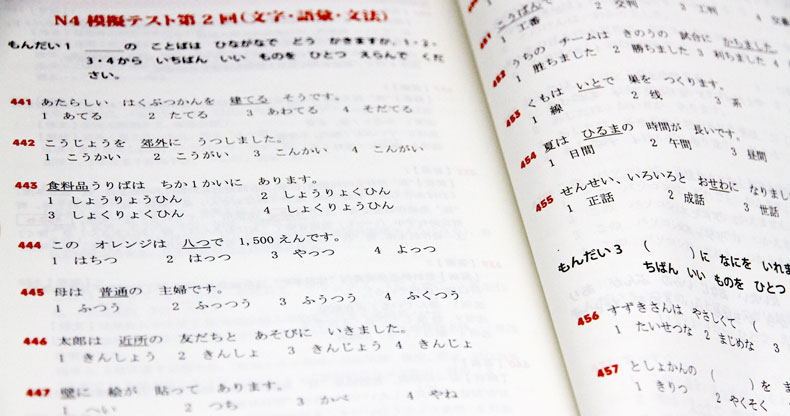 N4 模擬テスト第2回(文字・語彙・文法)
もんだい1 ＿＿＿の ことばは ひながなで どう かきますか。1・2・
3・4から いちばん いい ものを ひとつ えらんで くだ
さい。
441 あたらしい はくぶつかんを 建てる そうです。
1 あてる 2 たてる 3 あわてる 4 そだてる
442 こうじょうを 郊外に うつしました。
1 こうかい 2 こうがい 3 こんかい 4 こんがい
443 食料品うりばは ちか1かいに あります。
1 しょうりょうひん 2 しょうりょくひん
3 しょくりょくひん 4 しょくりょうひん
444 この オレンジは 八つで 1,500えんです。
1 はちつ 2 はっつ 3 やっつ 4 よっつ
445 母は 普通の 主婦です。
1 ふつう 2 ふっつう 3 ふうつう 4 ふくつう
446 太郎は 近所の 友だちと あそびに いきました。
1 きんしょう 2 きんしょ 3 きんじょう 4 きんじょ
447 壁に 絵が 貼って あります。
1 へい 2 つち 3 かべ 4 やね
こうばんで
1 工番 2 交判 3 工判 4
452 うちの チームは きのうの 試合に かちました
1 胜ちました 2 勝ちました 3 利ちました 4
453 くもは いとで 巣を つくります。
1 線 2 线 3 系
454 夏は ひる圭の 時間が 長いです。
1 日間 2 午間 3 昼間
455 せんせい、いろいろと おせわに なりまし
1 正話 2 成話 3 世話
もんだい3 ( )に なにを いれま
ちばん いい ものを ひとつ
456 すずきさんは やさしくて (
1 たいせつな 2 まじめな 3
457 としょかんの ( )を ま
1 きりつ 2 やくそく